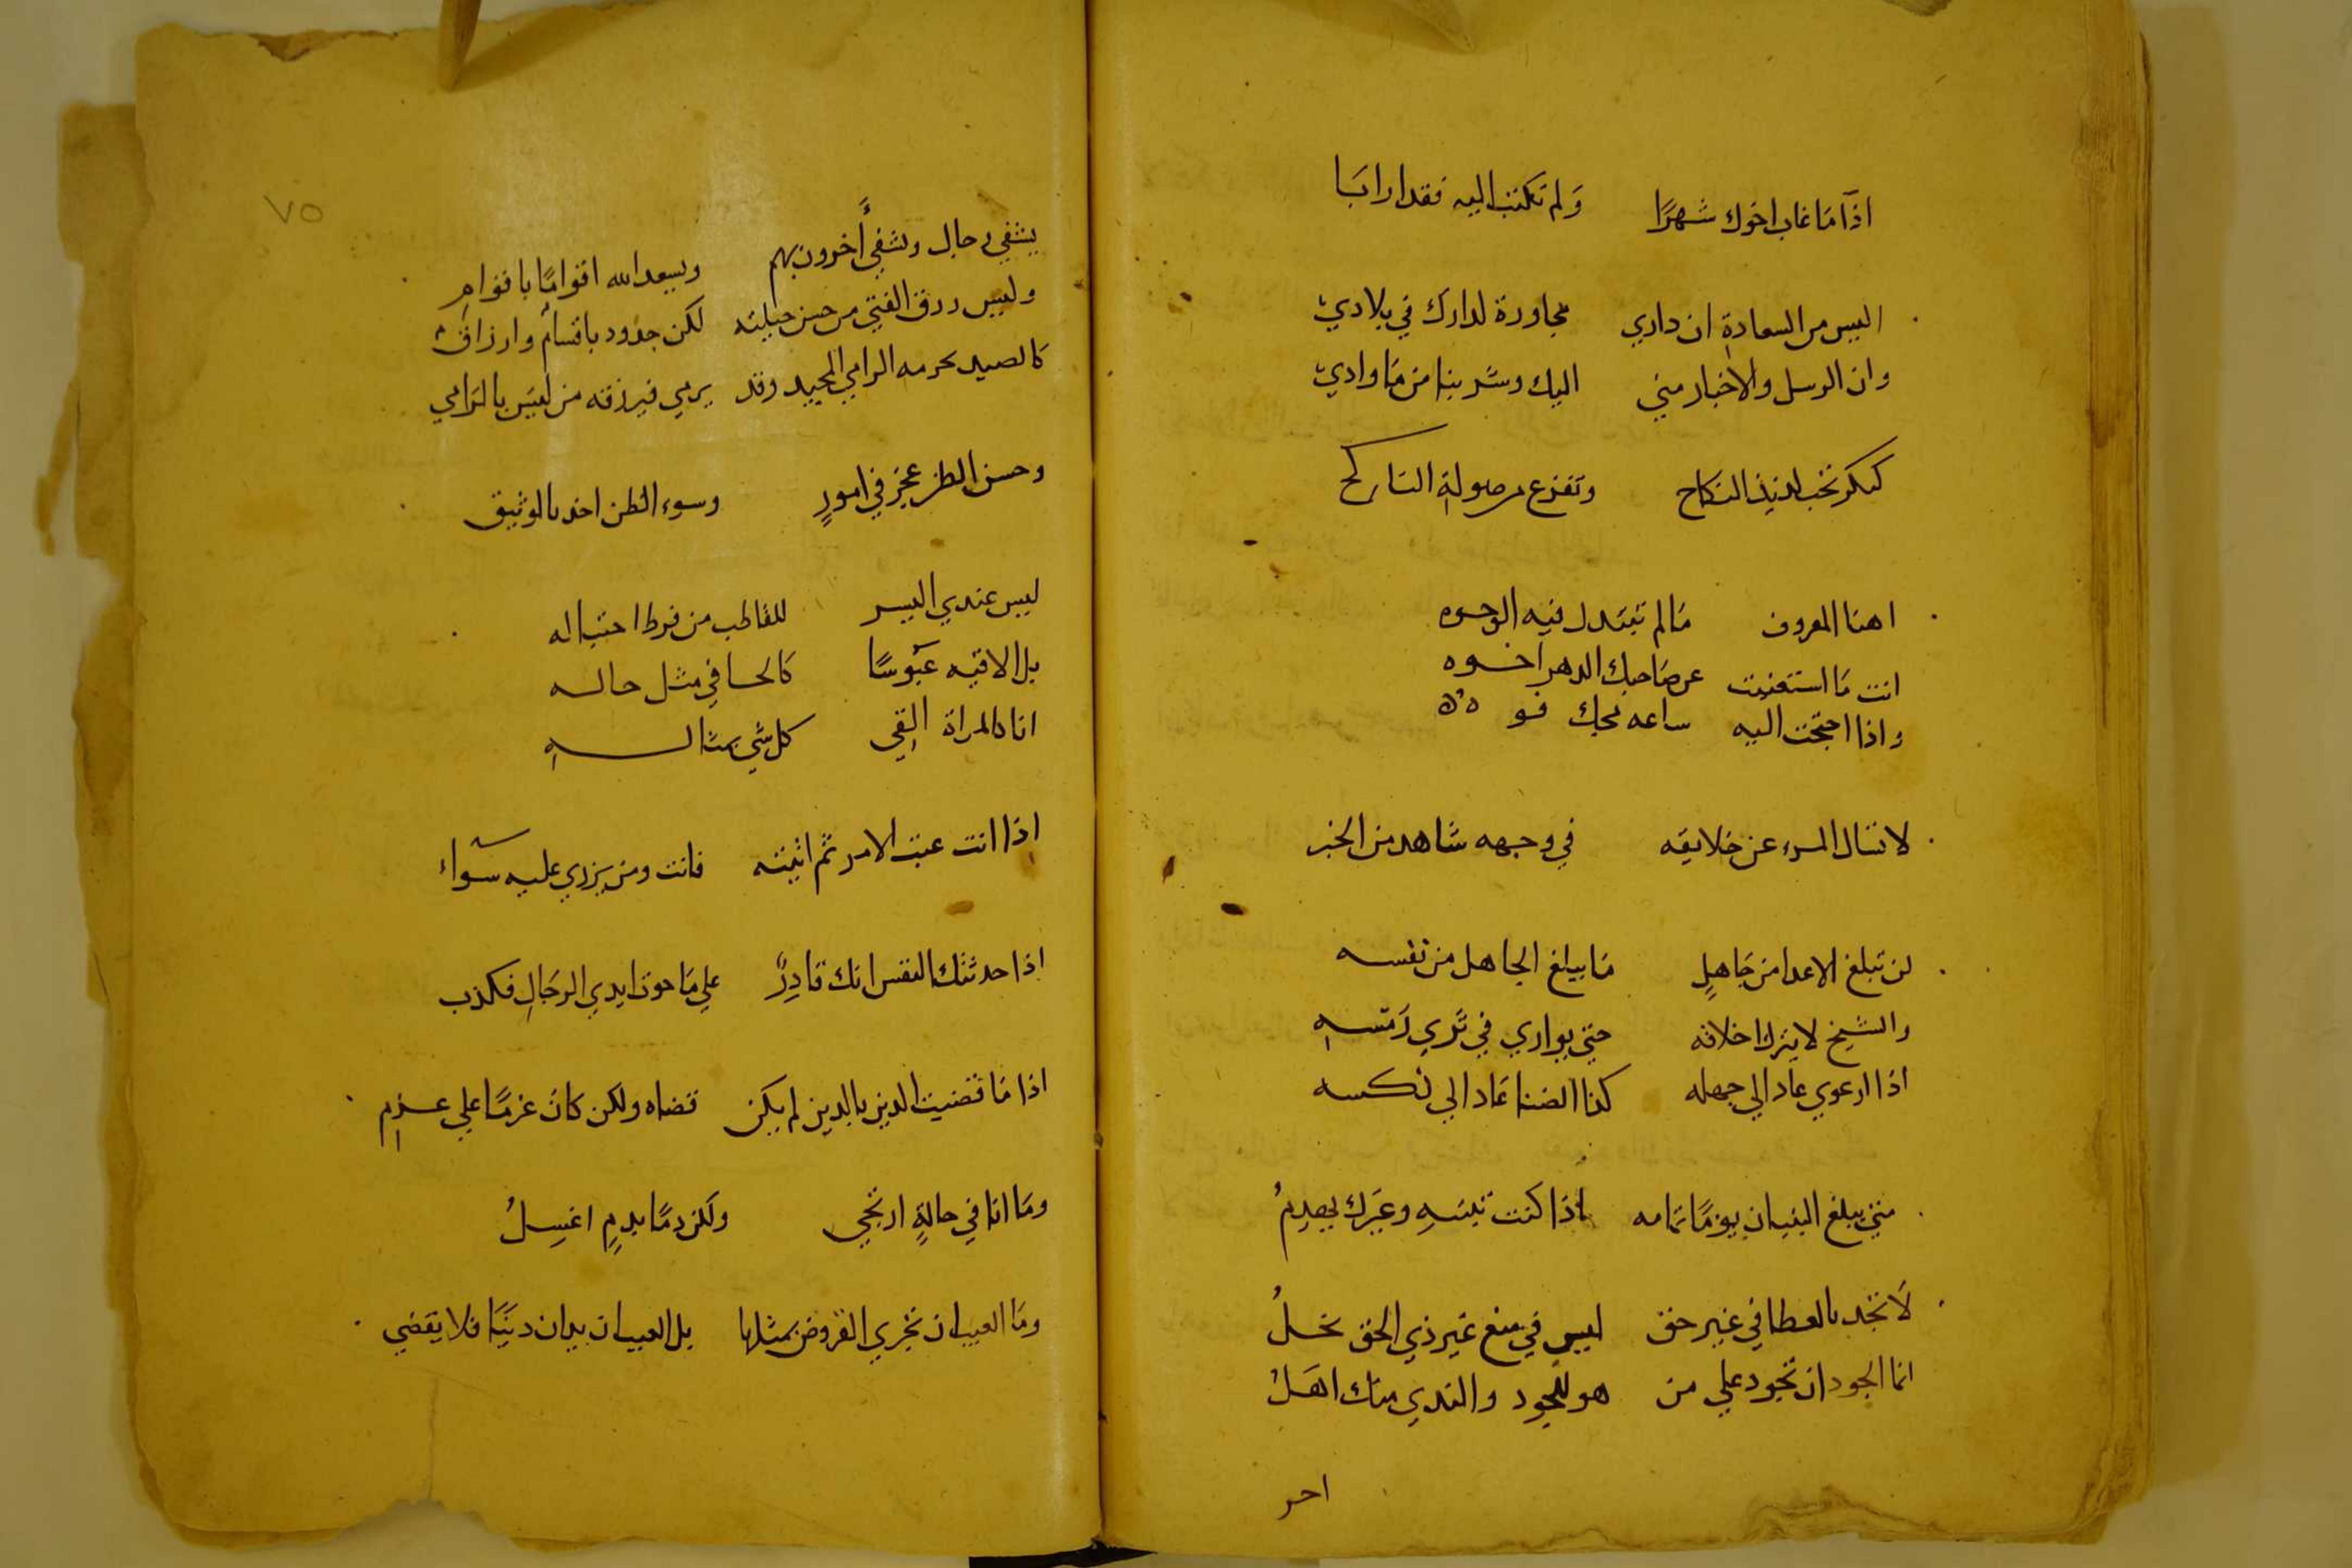 اذا ما غاب اخوك شهرًا ولم تكتب اليه فقد ارابا
اليس من السعادة ان داري مجاورة لدارك في بلادي
وان الرسل والاخبار مني اليك وشربنا من ما وادي
كبكر تحب لذيذ النكاح وتفزع من صولة الناكح
اهنا المعروف ما لم تبتدل فيه الوجوه
انت ما استغنيت عن صاحبك الدهر اخوه
واذا احتجت اليه ساعه مجك فوه
لا تسال المرء عن خلايقه في وجهه شاهد من الخبر
لن تبلغ الاعدا من جاهلٍ ما يبلغ الجاهل من نفسه
والشيخ لا يترك اخلاقه حتي يواري في ثري رمسه
اذا ارعوي عاد الي جهله كذا الضنا عاد الي نكسه
متي يبلغ البنيان يومًا تمامه اذا كنت تبنيه وغيرك يهدمُ
لا تجد بالعطا في غير حق ليس في منع غير ذي الحق بخلُ
انما الجود ان تجود علي من هو للجود والندي منك اهلُ
احر
٧٥
يشقي رجال ويشقي أخرون بهم ويسعد الله اقوامًا باقوامِ
وليس رزق الفتي من حسن حيلته لكن جدود باقسام وارزاق
كالصيد يحرمه الرامي المجيد وقد يرمي فيرزقه من ليس بالرامي
وحسن الظن عجز في امورٍ وسوء الظن اخذ بالوثيق
ليس عندي اليسر للقاطب من فرط احتياله
بل الاقيه عبوسًا كالحا في مثل حاله
انا كالمراة القي كل شي بمثاله
اذا انت عبت الامر ثم اتيته فانت ومن يزري عليه سواء
اذا حدثتك النفس انك قادرٌ علي ما حوت ايدي الرجال فكذب
اذا ما قضيت الدين بالدين لم يكن قضاه ولكن كان غرمًا علي غرم
وما انا في حالةٍ ارتجي ولكن دمًا بدمٍ اغسِلُ
وما العيب ان تجزي القروض بمثلها بل العيب ان يدان دينًا فلا يقضي